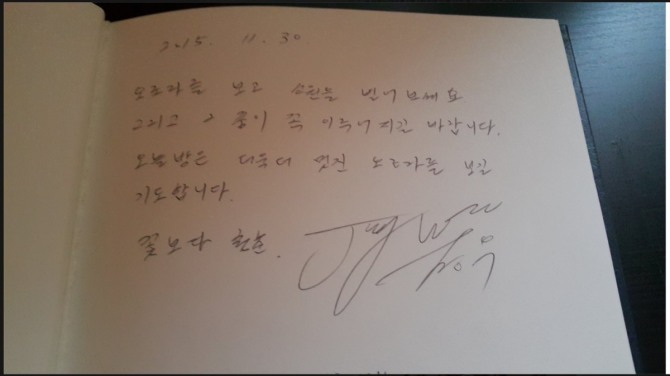 2015. 11. 30.
오로라를 보고 소원을 빌어보세요
그리고 그 꿈이 꼭 이루어지길 바랍니다.
오늘밤은 더욱더 멋진 노로라를 보길
기도합니다.
꽃보다 청춘.